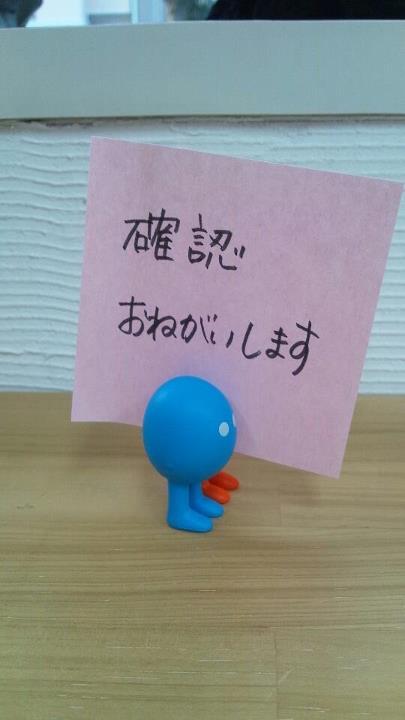 確認
おねがいします